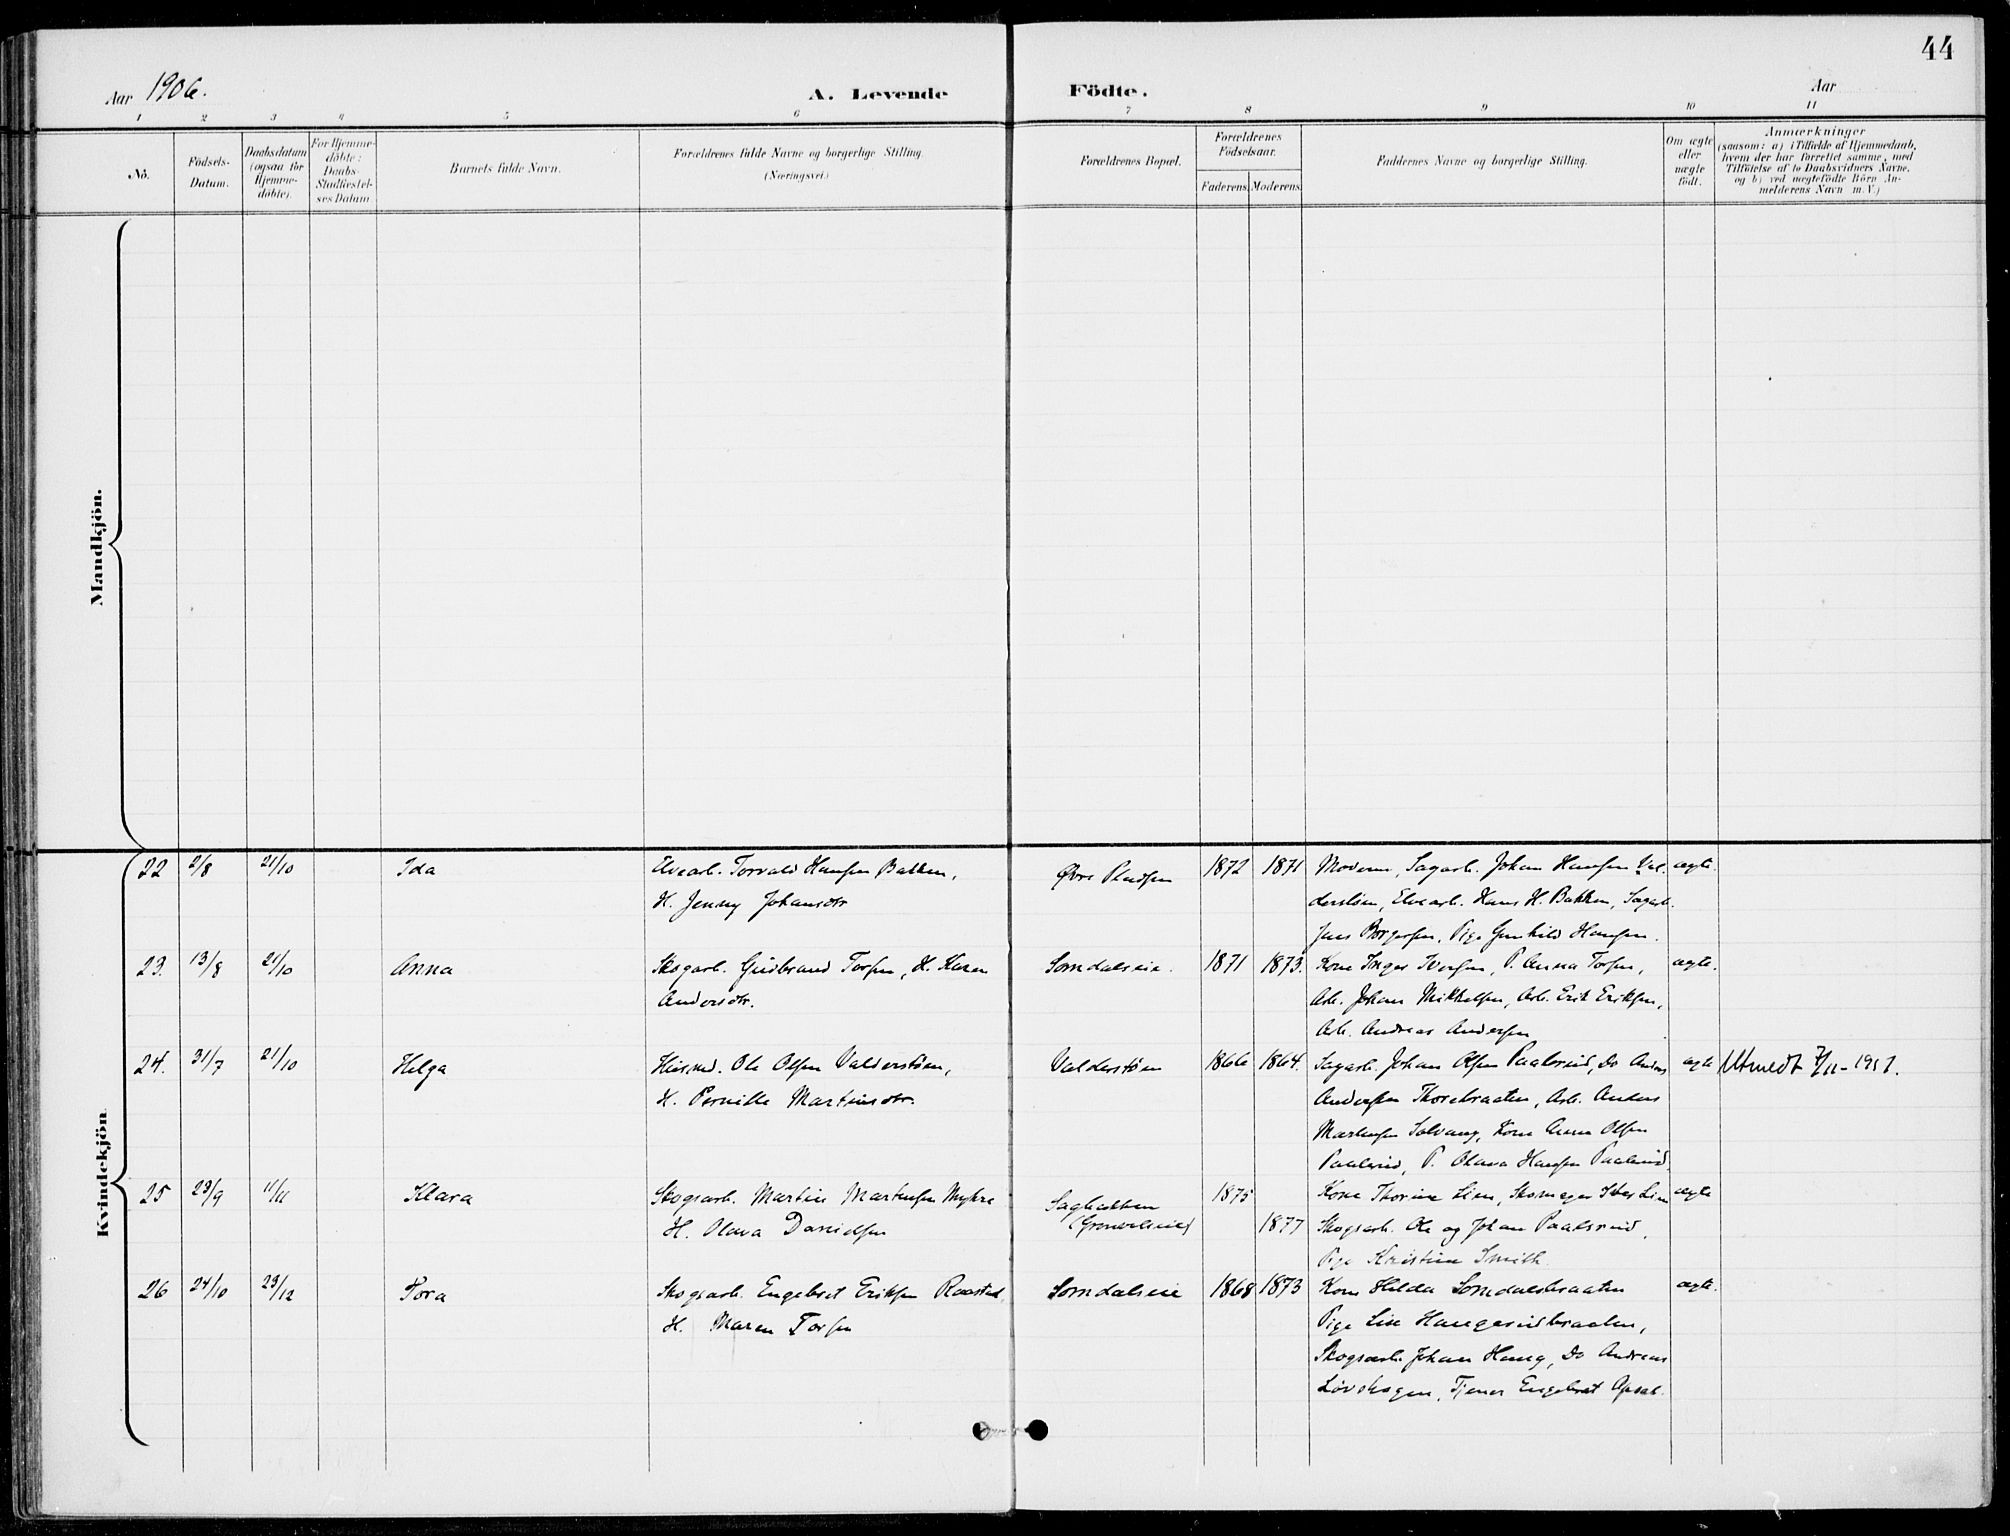 44
Aar 1906.
A. Levende Födte.
Aar
1 2 3 4 5 6 7 8 9 10 11
No.
Födsels-Datum.
Daabsdatum (ogsaa for Hjemme-döbte).
For Hjemme-döbte: Daabs-Stadfæstel-ses Datum
Barnets fulde Navn.
Forældrenes fulde Navne og borgerlige Stilling.
(Næringsvei.)
Forældrenes Bopæl.
Forældrenes Födselsaar.
Faderens. Moderens.
Faddernes Navne og borgerlige Stilling.
Om ægte eller uægte födt.
Anmærkninger
(saasom: a) i Tilfælde af Hjemmedaab,
hvem der har forrettet samme, med
Tilföielse af to Daabsvidners Navne,
og b) ved uægtefödte Börn An-
melderens Navn m. V.)
Mandkjön.
Kvindekjön.
22 2/8 21/10 Ida
Elvearb. Torvald Hansen Bakken,
H. Jenny Johansdtr
Øvre 1872 1871
Moderen, Sagarb. Johan Hansen Val-
derstøen, Elvearb. Hans H. Bakken, Sagarb.
Jens Borgersen, Pige Gunhild Hansen.
ægte.
23. 13/8 21/10 Anna
Skogarb. Gudbrand Torsen, H. Karen
Andersdtr.
Sorndalseie. 1871 1873.
Kone Inger Iversen, P. Anna Torsen,
Arb. Johan Mikkelsen, Arb. Erik Eriksen,
Arb. Andreas Andersen
ægte.
24. 31/7 21/10 Helga
Husmd. Ole Olsen Valderstøen,
H. Pernille Martinsdtr.
Valderstøen 1866 1864.
Sagarb. Johan Olsen Paalsrud, Do Anders
Andersen Thorebraaten, Arb. Anders
Martinsen Solvang, Kone Anna Olsen
Paalsrud, P. Hansen Paalsrud.
ægte Utmeldt 7/11-1951.
25 23/9 11/11 Klara
Skogsarb. Martin Martinsen Myhre
H. Olava Danielsen
Sagbakken
1875
1877
Kone Thorine Lien, Skomager Lien
Skogsarb. Ole og Johan Paalsrud,
Pige Kristine Smith.
ægte
26 24/10 23/12 Tora
Skogsarb. Engebret Eriksen Raastad,
H. Maren Torsen
Sorndalseie 1868 1873
Kone Hilda Sorndalsbraaten
Pige Lise Haugerudbraaten,
Skogsarb. Johan Haug, Do Andreas
Løvskogen, Tjener Engebret Opsal.
ægte.